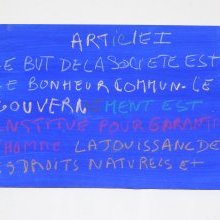 ARTICLE I
LE BUT DE LA SOCIETE EST
LE BONHEUR COMMUN. LE
GOUVERN MENT EST
INSTITUE POUR GARANTIR
L'HOMME LA JOUISSANCE DE
ES DROITS NATURELS ET